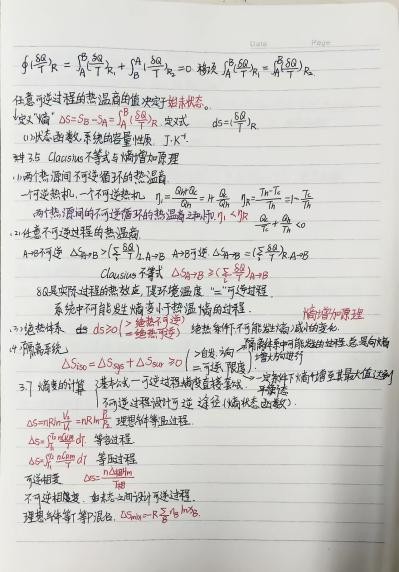 Date Page
∮(δQ/T)R = ∫_A^B(δQ/T)R₁ + ∫_B^A(δQ/T)R₂ = 0 移项 ∫_A^B(δQ/T)R₁ = ∫_A^B(δQ/T)R₂
任意可逆过程的热温商的值决定于始末状态。
定义"熵" ΔS=S_B-S_A=∫_A^B(δQ/T)R 定义式 dS=(δQ/T)R
(1)状态函数,系统的容量性质 J·K⁻¹
3.5 Clausius 不等式与熵增加原理
(1)两个热源间不可逆循环的热温商
一个可逆热机,一个不可逆热机 η_I=(Q_h+Q_c)/Q_h=1+Q_c/Q_h η_R=(T_h-T_c)/T_h=1-T_c/T_h
两个热源间的不可逆循环的热温商之和小于0. η_I<η_R Q_c/T_c+Q_h/T_h<0
(2)任意不可逆过程的热温商
A→B不可逆 ΔS_A→B>(Σ δQ/T)I,A→B A→B可逆 ΔS_A→B=(Σ δQ/T)R,A→B
Clausius 不等式 ΔS_A→B≥(Σ δQ/T)A→B
δQ是实际过程的热效应,T是环境温度 "="可逆过程
系统中不可能发生熵变小于热温熵的过程.
熵增加原理
(3)绝热体系 dS≥0(>绝热不可逆 =绝热可逆) 绝热条件下不可能发生熵减小的变化
(4)隔离系统 隔离体系中可能发生的过程,总是向熵增大的进行
ΔS_iso=ΔS_sys+ΔS_sur≥0 (>自发,方向 =可逆,限度) 一定条件下熵增至其最大值达到平衡态
3.7 熵变的计算 基本公式—可逆过程熵变直接套公
不可逆过程设计可逆途径(熵状态函数).
ΔS=nRln V₂/V₁=nRln P₁/P₂ 理想气体等温过程
ΔS=∫_T₁^T₂ nC_v,m/T dT 等容过程
ΔS=∫_T₁^T₂ nC_p,m/T dT 等压过程
可逆相变 ΔS=nΔ相变H_m/T相变
不可逆相变 始末态之间设计可逆过程.
理想气体等T等P混合,ΔS_mix=-RΣ_B n_B ln x_B.